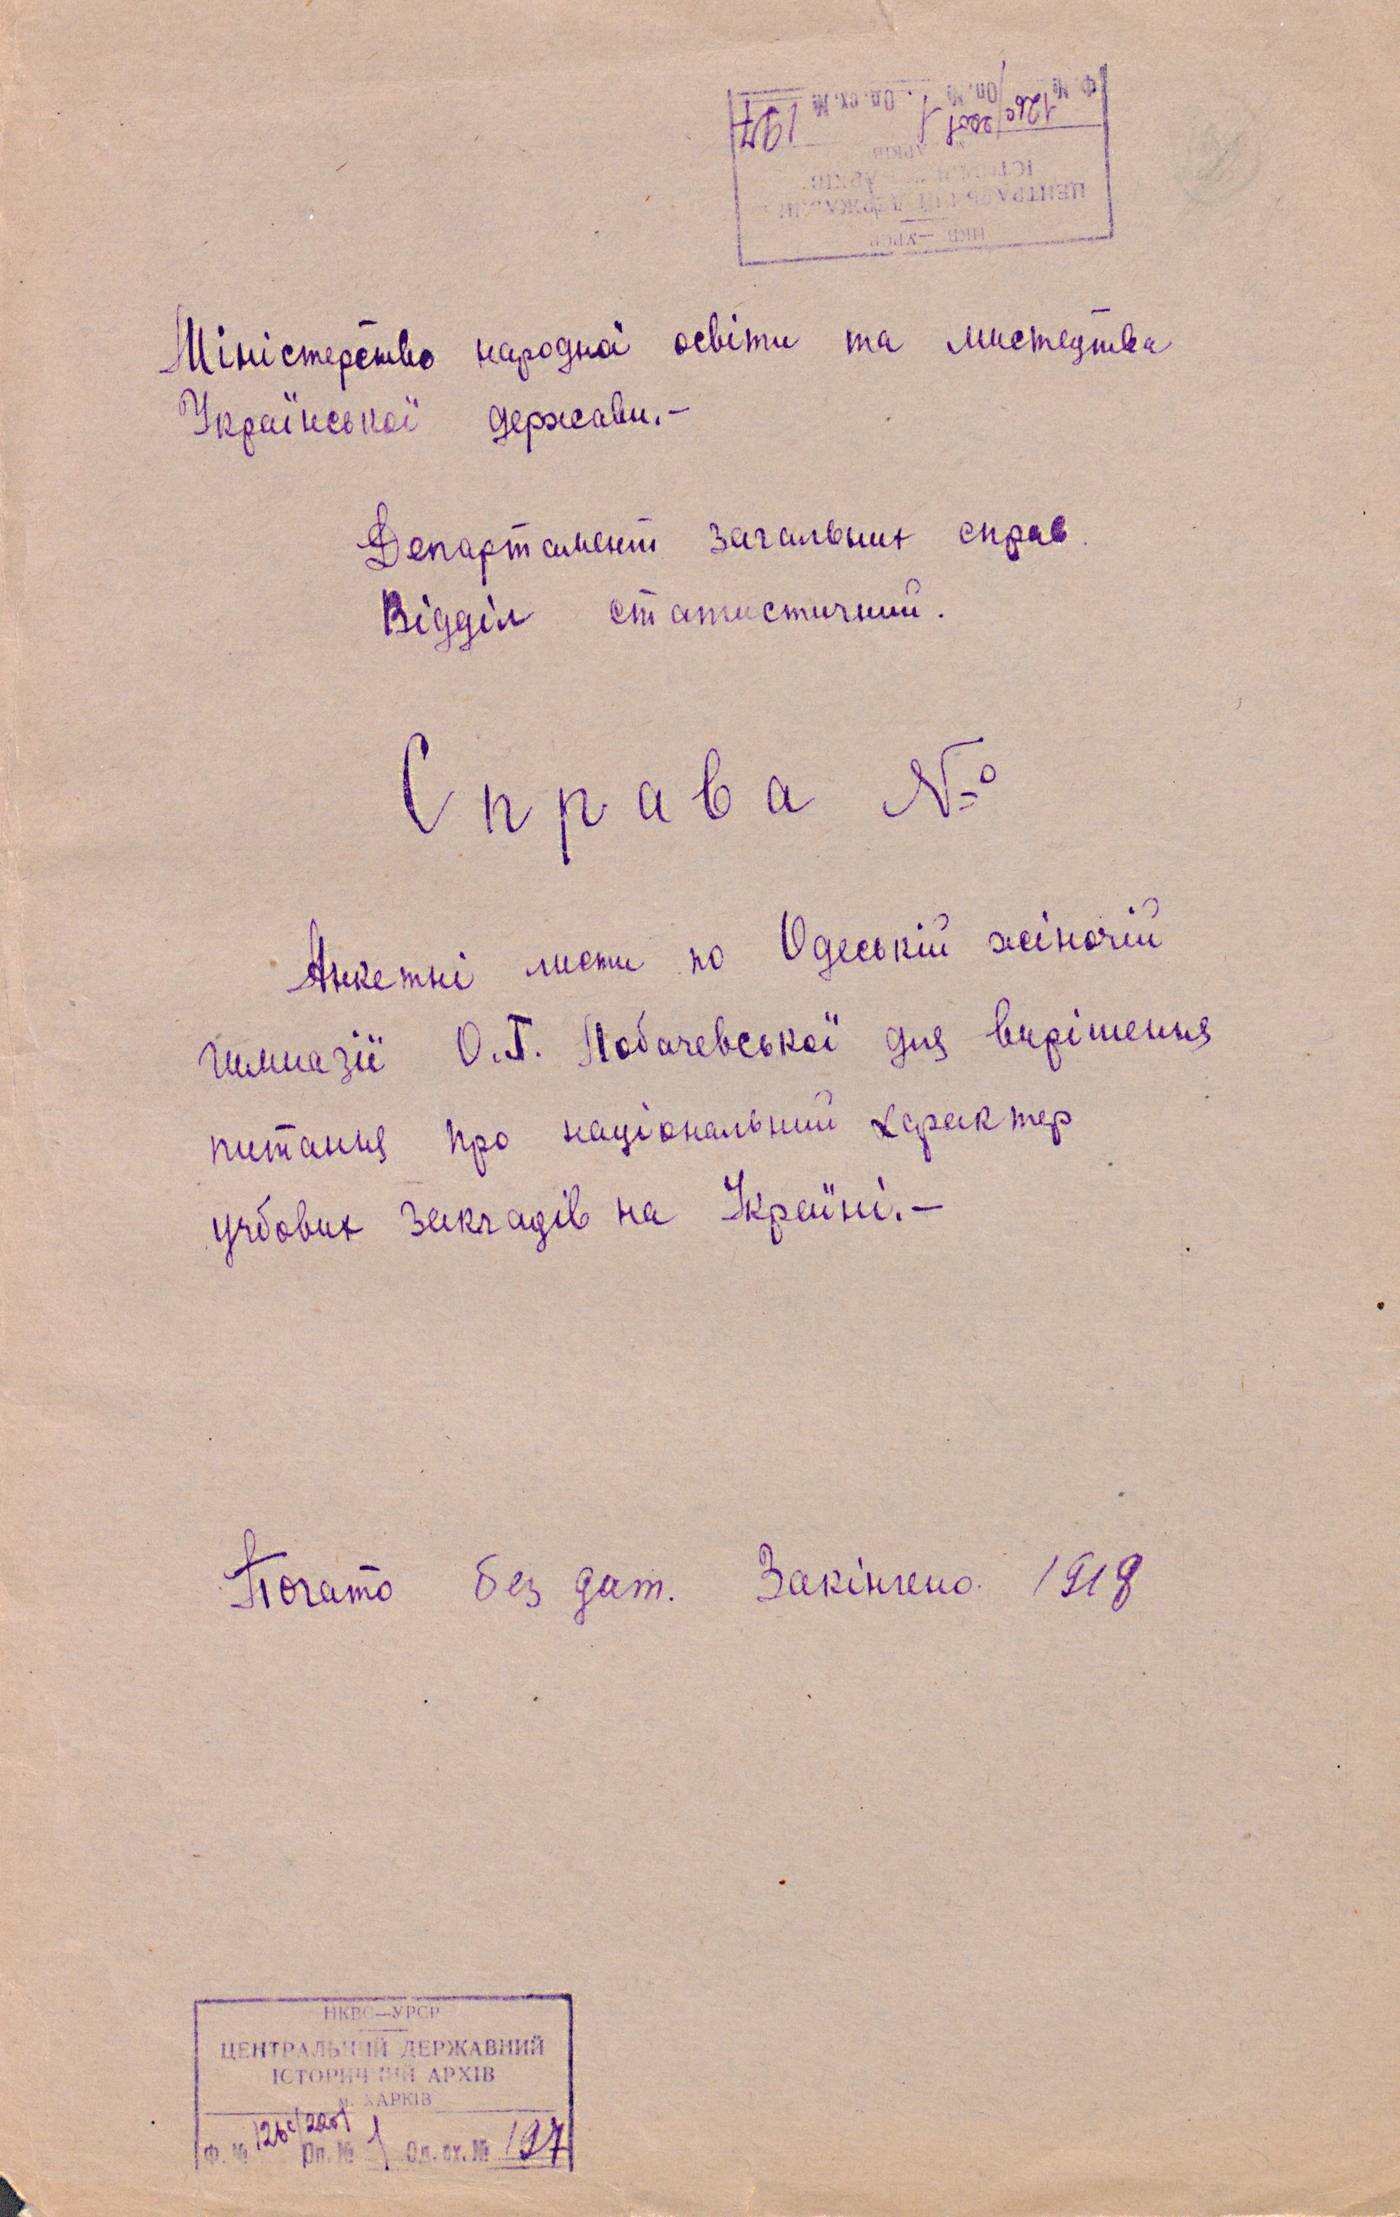 Ф. № 126с/2201 Оп. № 1 Од. сх. № 197
ЦЕНТРАЛЬНИЙ ДЕРЖАВНИЙ
ІСТОРИЧНИЙ АРХІВ
НКВС—УРСР
Міністерство народної освіти та мистецтва
Української держави.—
Департамент загальних справ.
Відділ статистичний.
Справа №
Анкетні листи по Одеській жіночій
гимназії О.Г. Лобачевської для вирішення
питання про національний характер
учбових закладів на Україні.—
Почато без дат. Закінчено 1918
НКВС—УРСР
ЦЕНТРАЛЬНИЙ ДЕРЖАВНИЙ
ІСТОРИЧНИЙ АРХІВ
м. ХАРКІВ
Ф. № 126с/2201 Оп. № 1 Од. сх. № 197